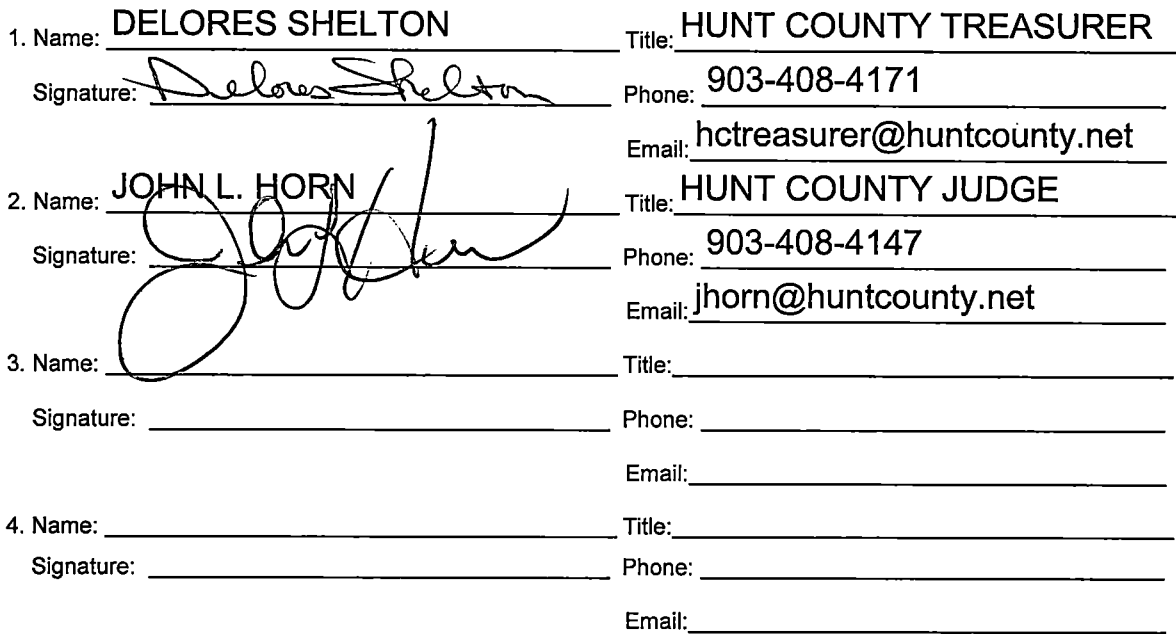 1. Name: DELORES SHELTON Title: HUNT COUNTY TREASURER
Signature: Delores Shelton Phone: 903-408-4171
Email: hctreasurer@huntcounty.net
2. Name: JOHN L. HORN Title: HUNT COUNTY JUDGE
Signature: Phone: 903-408-4147
Email: jhorn@huntcounty.net
3. Name: Title:
Signature: Phone:
Email:
4. Name: Title:
Signature: Phone:
Email: